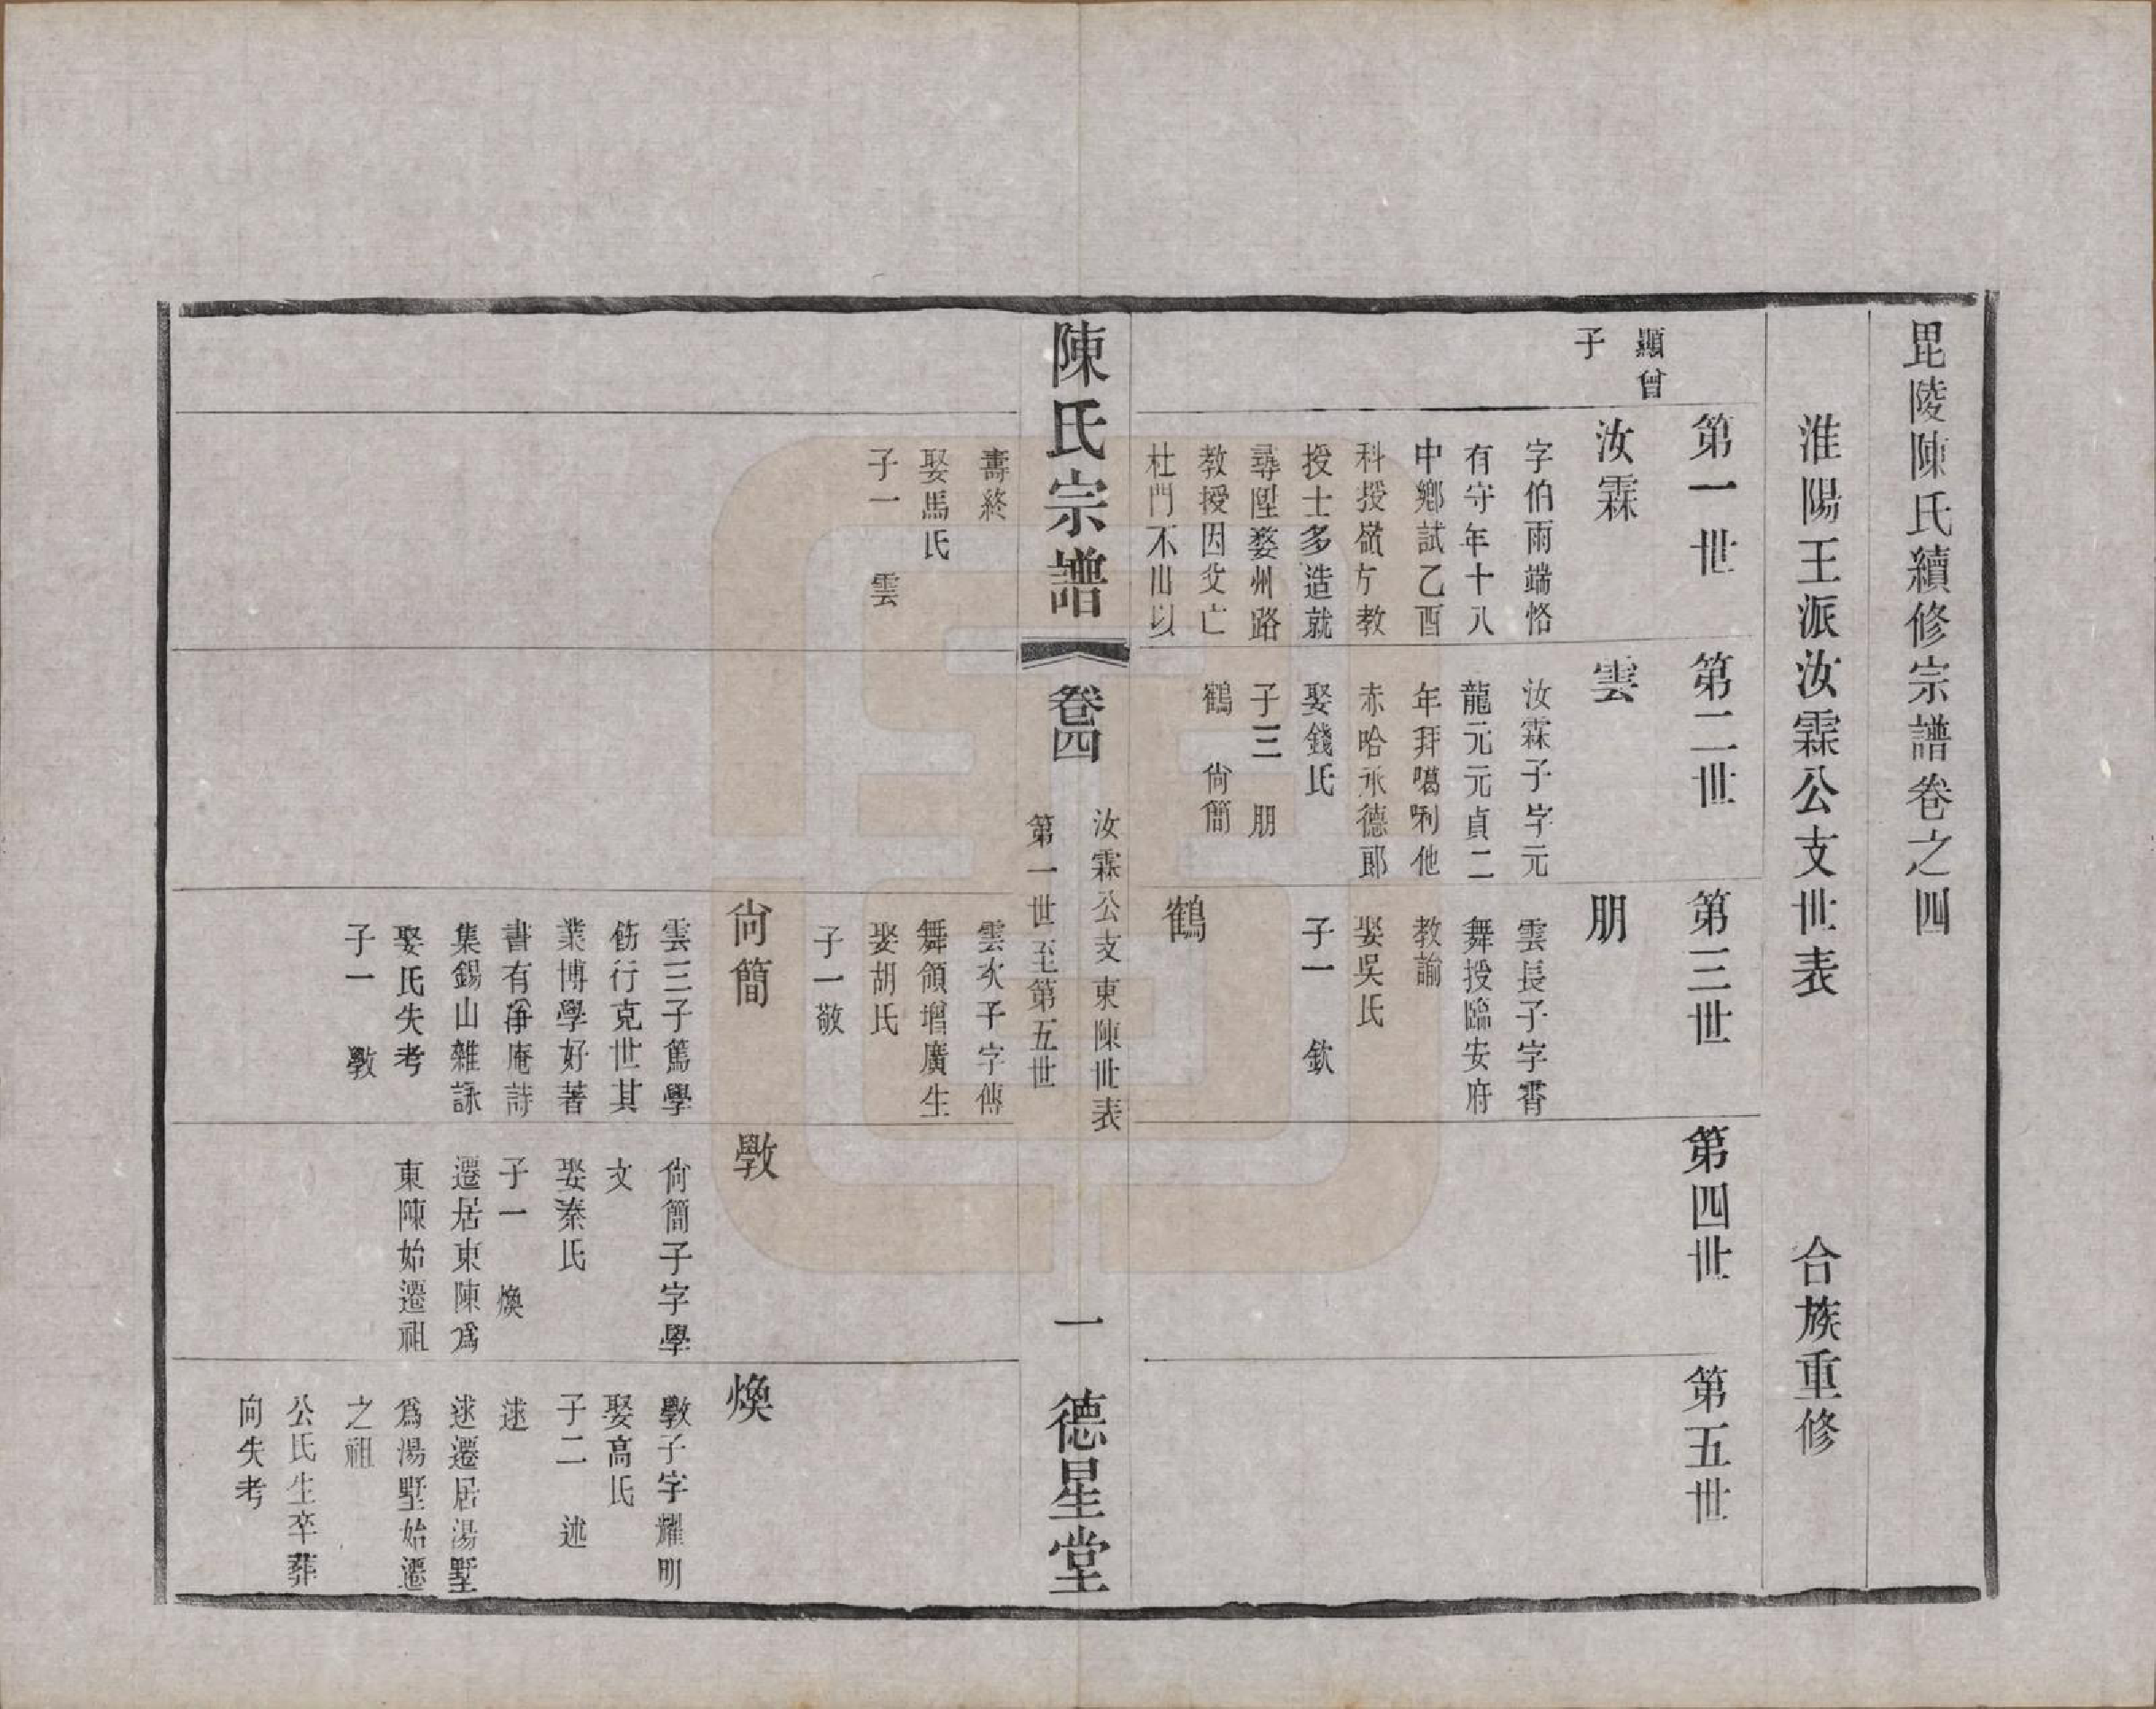 毘陵陳氏續修宗譜卷之四
淮陽王派汝霖公支世表　合族重修
第一世
第二世
第三世
第四世
第五世
顯曾
子
汝霖
字伯雨端恪
有守年十八
中鄉試乙酉
科授嶺方教
授士多造就
尋陞婺州路
教授因父亡
杜門不出以
雲
汝霖子字元
龍元元貞二
年拜噶唎他
赤哈氶德郎
娶錢氏
子三　朋
鶴　尙簡
朋
雲長子字霄
舞授臨安府
教諭
娶吳氏
子一　欽
鶴
陳氏宗譜
卷四
汝霖公支東陳世表
第一世至第五世
一
德星堂
壽終
娶馬氏
子一　雲
雲次子字傳
舞領增廣生
娶胡氏
子一敬
尙簡
雲三子篤學
飭行克世其
業博學好著
書有淨庵詩
集錫山雜詠
娶氏失考
子一　斆
斆
尙簡子字學
文
娶秦氏
子一　煥
遷居東陳爲
東陳始遷祖
煥
斆子字耀明
娶高氏
子二　述
逑
逑遷居湯墅
爲湯墅始遷
之祖
公氏生卒葬
向失考